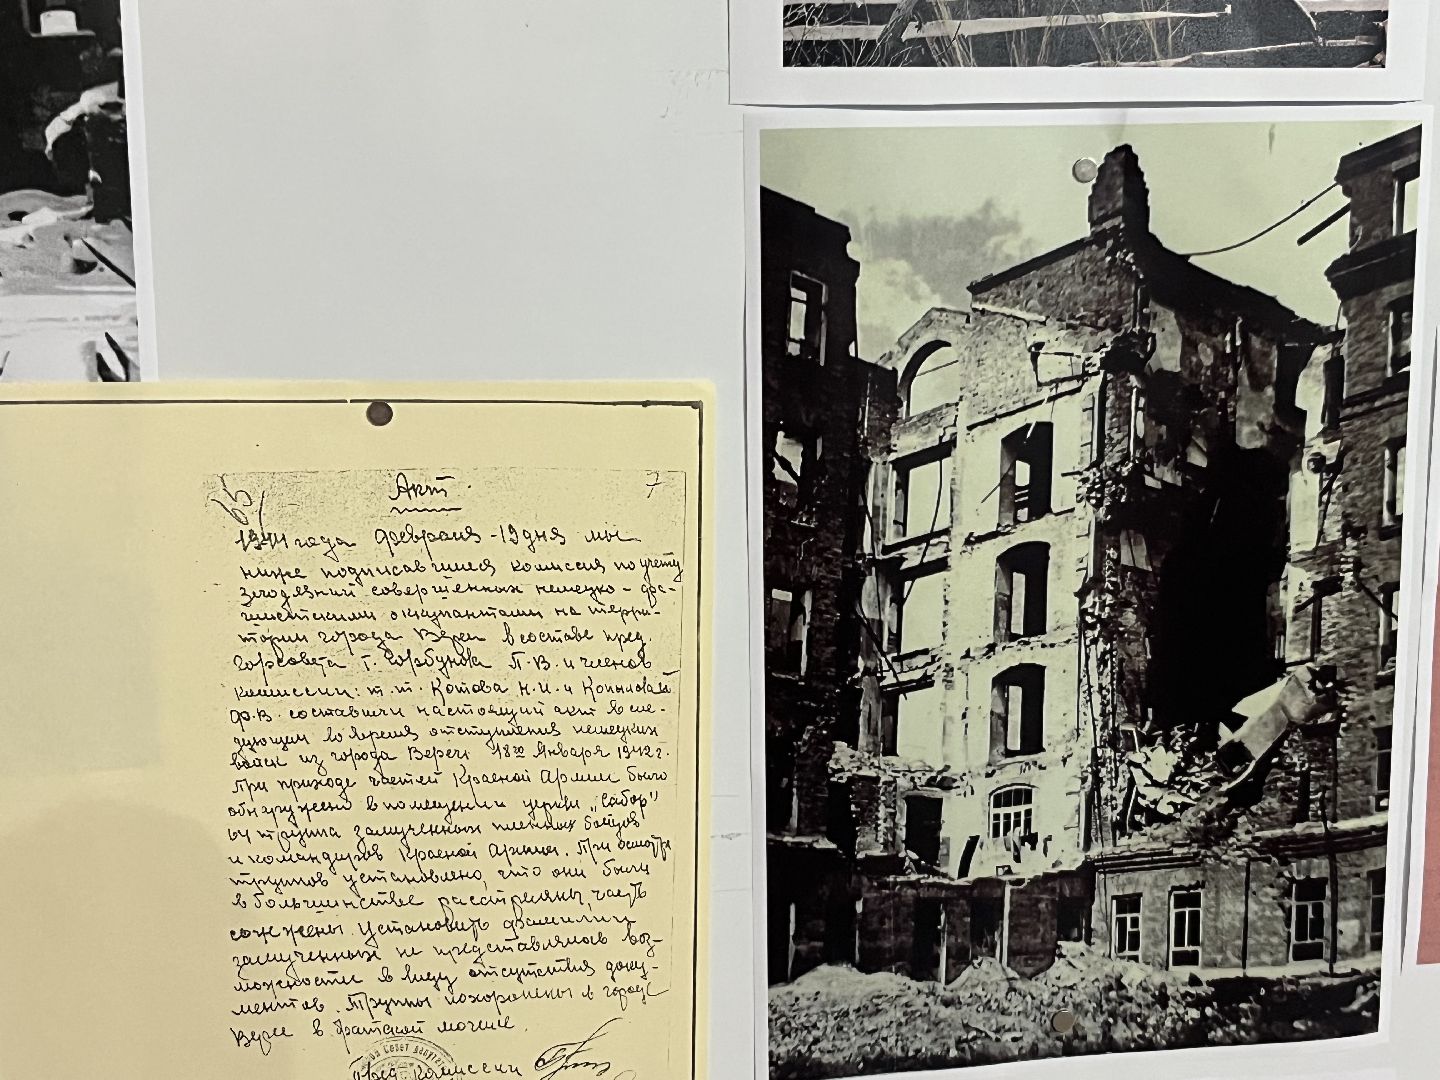 65
7
Акт.
1944 года февраля - 19 дня мы
ниже подписавшиеся комиссия по учету
злодеяний совершенных немецко-фа-
шистскими оккупантами на терри-
тории города Вереи в составе пред.
Горсовета т. Горбунова П.В. и членов
комиссии: т.т. Котова Н.И. и
Ф.В. составили настоящий акт в сле-
дующем во время отступления немецких
войск из города Вереи 18го Января 1942 г.
При приходе частей Красной Армии было
обнаружено в помещении церкви „Сабор"
64 трупа замученных пленных бойцов
и командиров Красной Армии. При осмотре
трупов установлено, что они были
в большинстве расстреляны, часть
сожжены. Установить фамилии
замученных не представлялось воз-
можности в виду отсутствия доку-
ментов. Трупы похоронены в городе
Верее в братской могиле.
Совет депутат
Пред комиссии